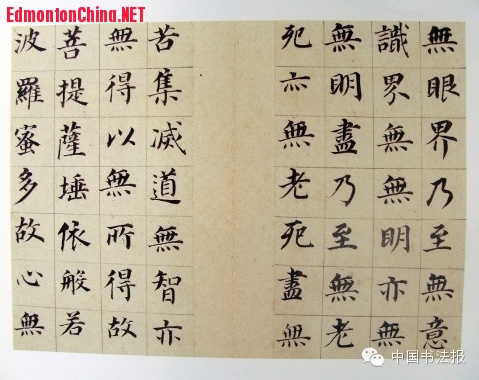 EdmontonChina.NET
無眼界乃至無意
識界無無明亦無
無明盡乃至無老
死亦無老死盡無
苦集滅道無智亦
無得以無所得故
菩提薩埵依般若
波羅蜜多故心無
中国书法报